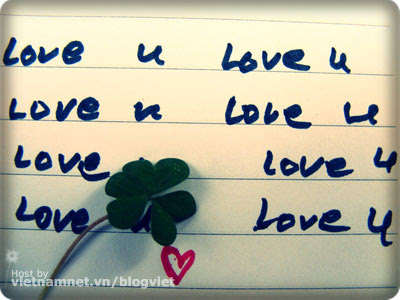 Love u Love u
Love u Love u
Love Love u
Love u Love u
Host by
vietnamnet.vn/blogviet